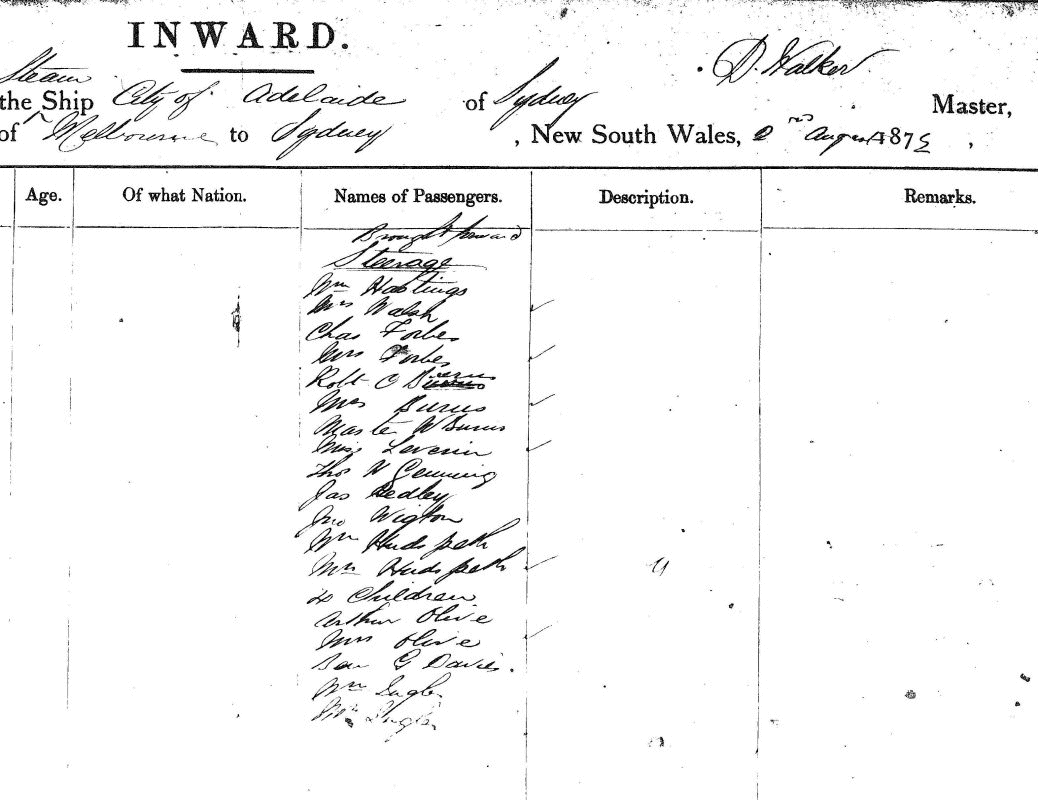 INWARD.
Steam
the Ship City of Adelaide of Sydney D. Walker Master,
of Melbourne to Sydney , New South Wales, August 187 ,
Age. Of what Nation. Names of Passengers. Description. Remarks.
Brought forward
Steerage
Wm Hastings
Mrs Walsh
Chas Forbes
Mrs Forbes
Robt C Burns
Mrs Burns
Master W Burns
Miss
Thos W
Jas Hedley
Jno Wigton
Wm Hudspeth
Mrs Hudspeth
Children
Arthur Olive
Mrs Olive
G Davies.
Wm